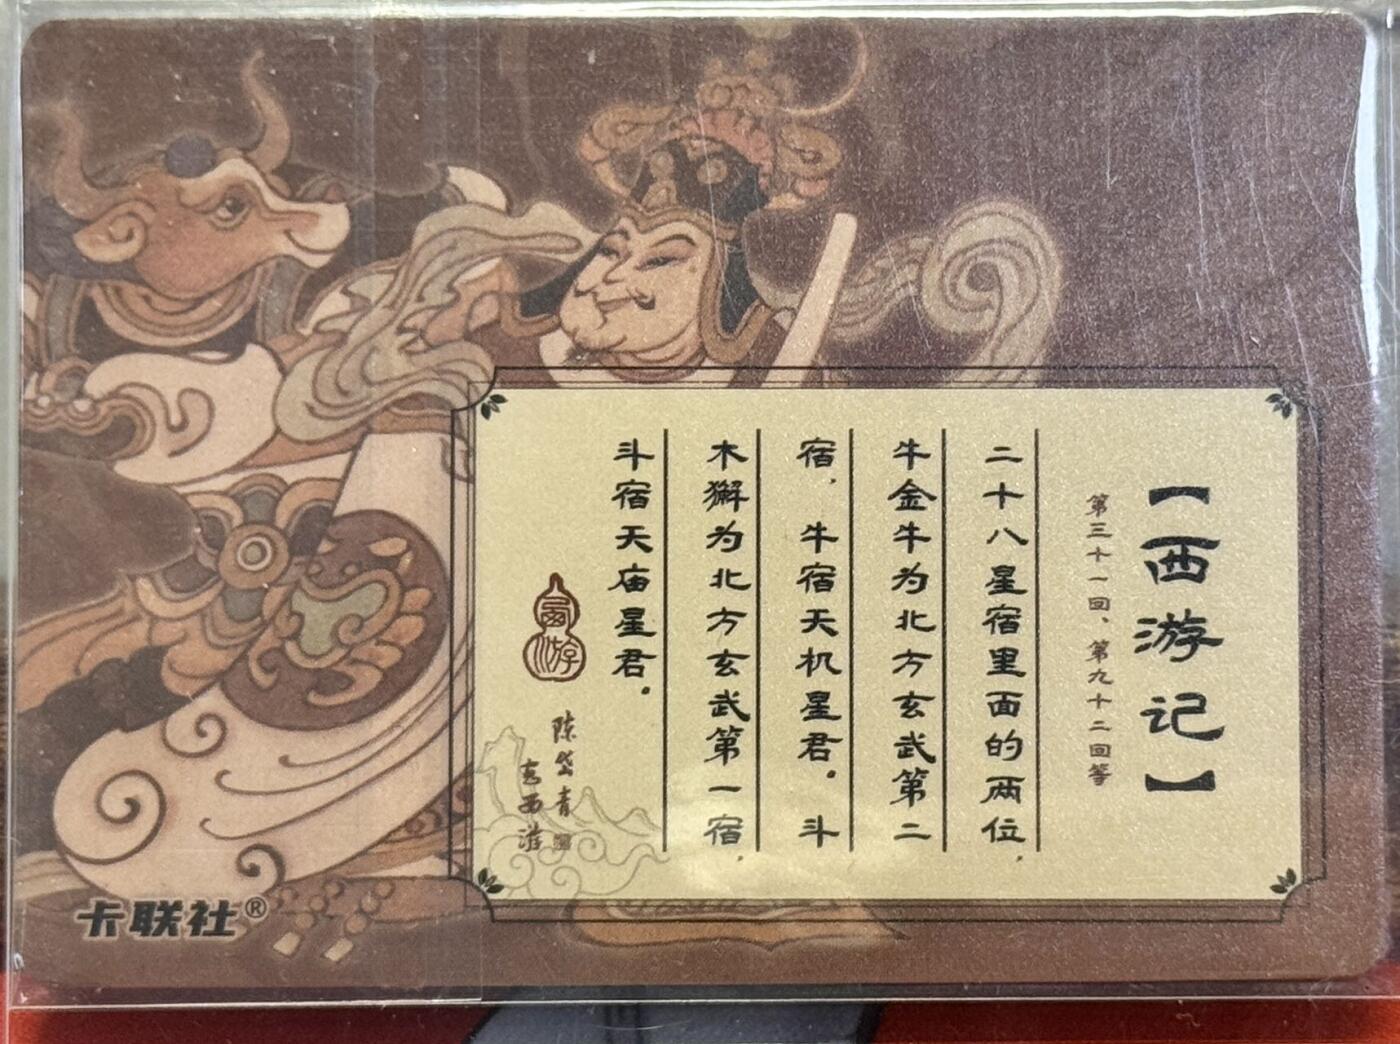 【西游记】
第三十一回、第九十二回等
二十八星宿里面的两位，
牛金牛为北方玄武第二
宿，牛宿天机星君。斗
木獬为北方玄武第一宿，
斗宿天庙星君。
西游
陈岱青
玄西游
卡联社®